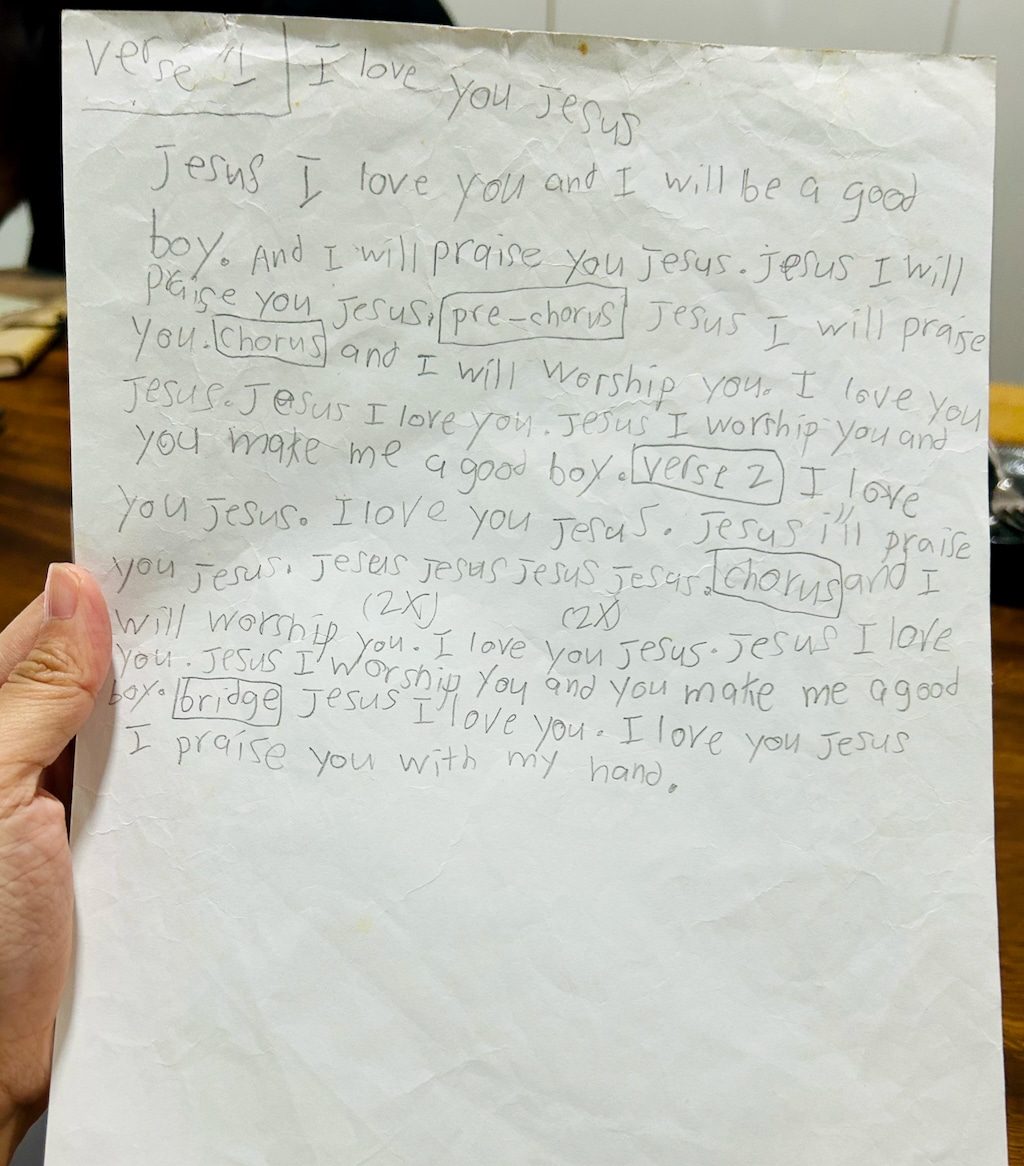 verse 1 I love you Jesus
Jesus I love you and I will be a good
boy. And I will praise you Jesus. Jesus I will
praise you Jesus. pre-chorus Jesus I will praise
you. Chorus and I will worship you. I love you
Jesus. Jesus I love you. Jesus I worship you and
you make me a good boy. verse 2 I love
you Jesus. I love you Jesus. Jesus i'll praise
you Jesus. Jesus Jesus Jesus Jesus. chorus and I
(2X) (2X)
will worship you. I love you Jesus. Jesus I love
you. Jesus I worship you and you make me a good
boy. bridge Jesus I love you. I love you Jesus
I praise you with my hand.